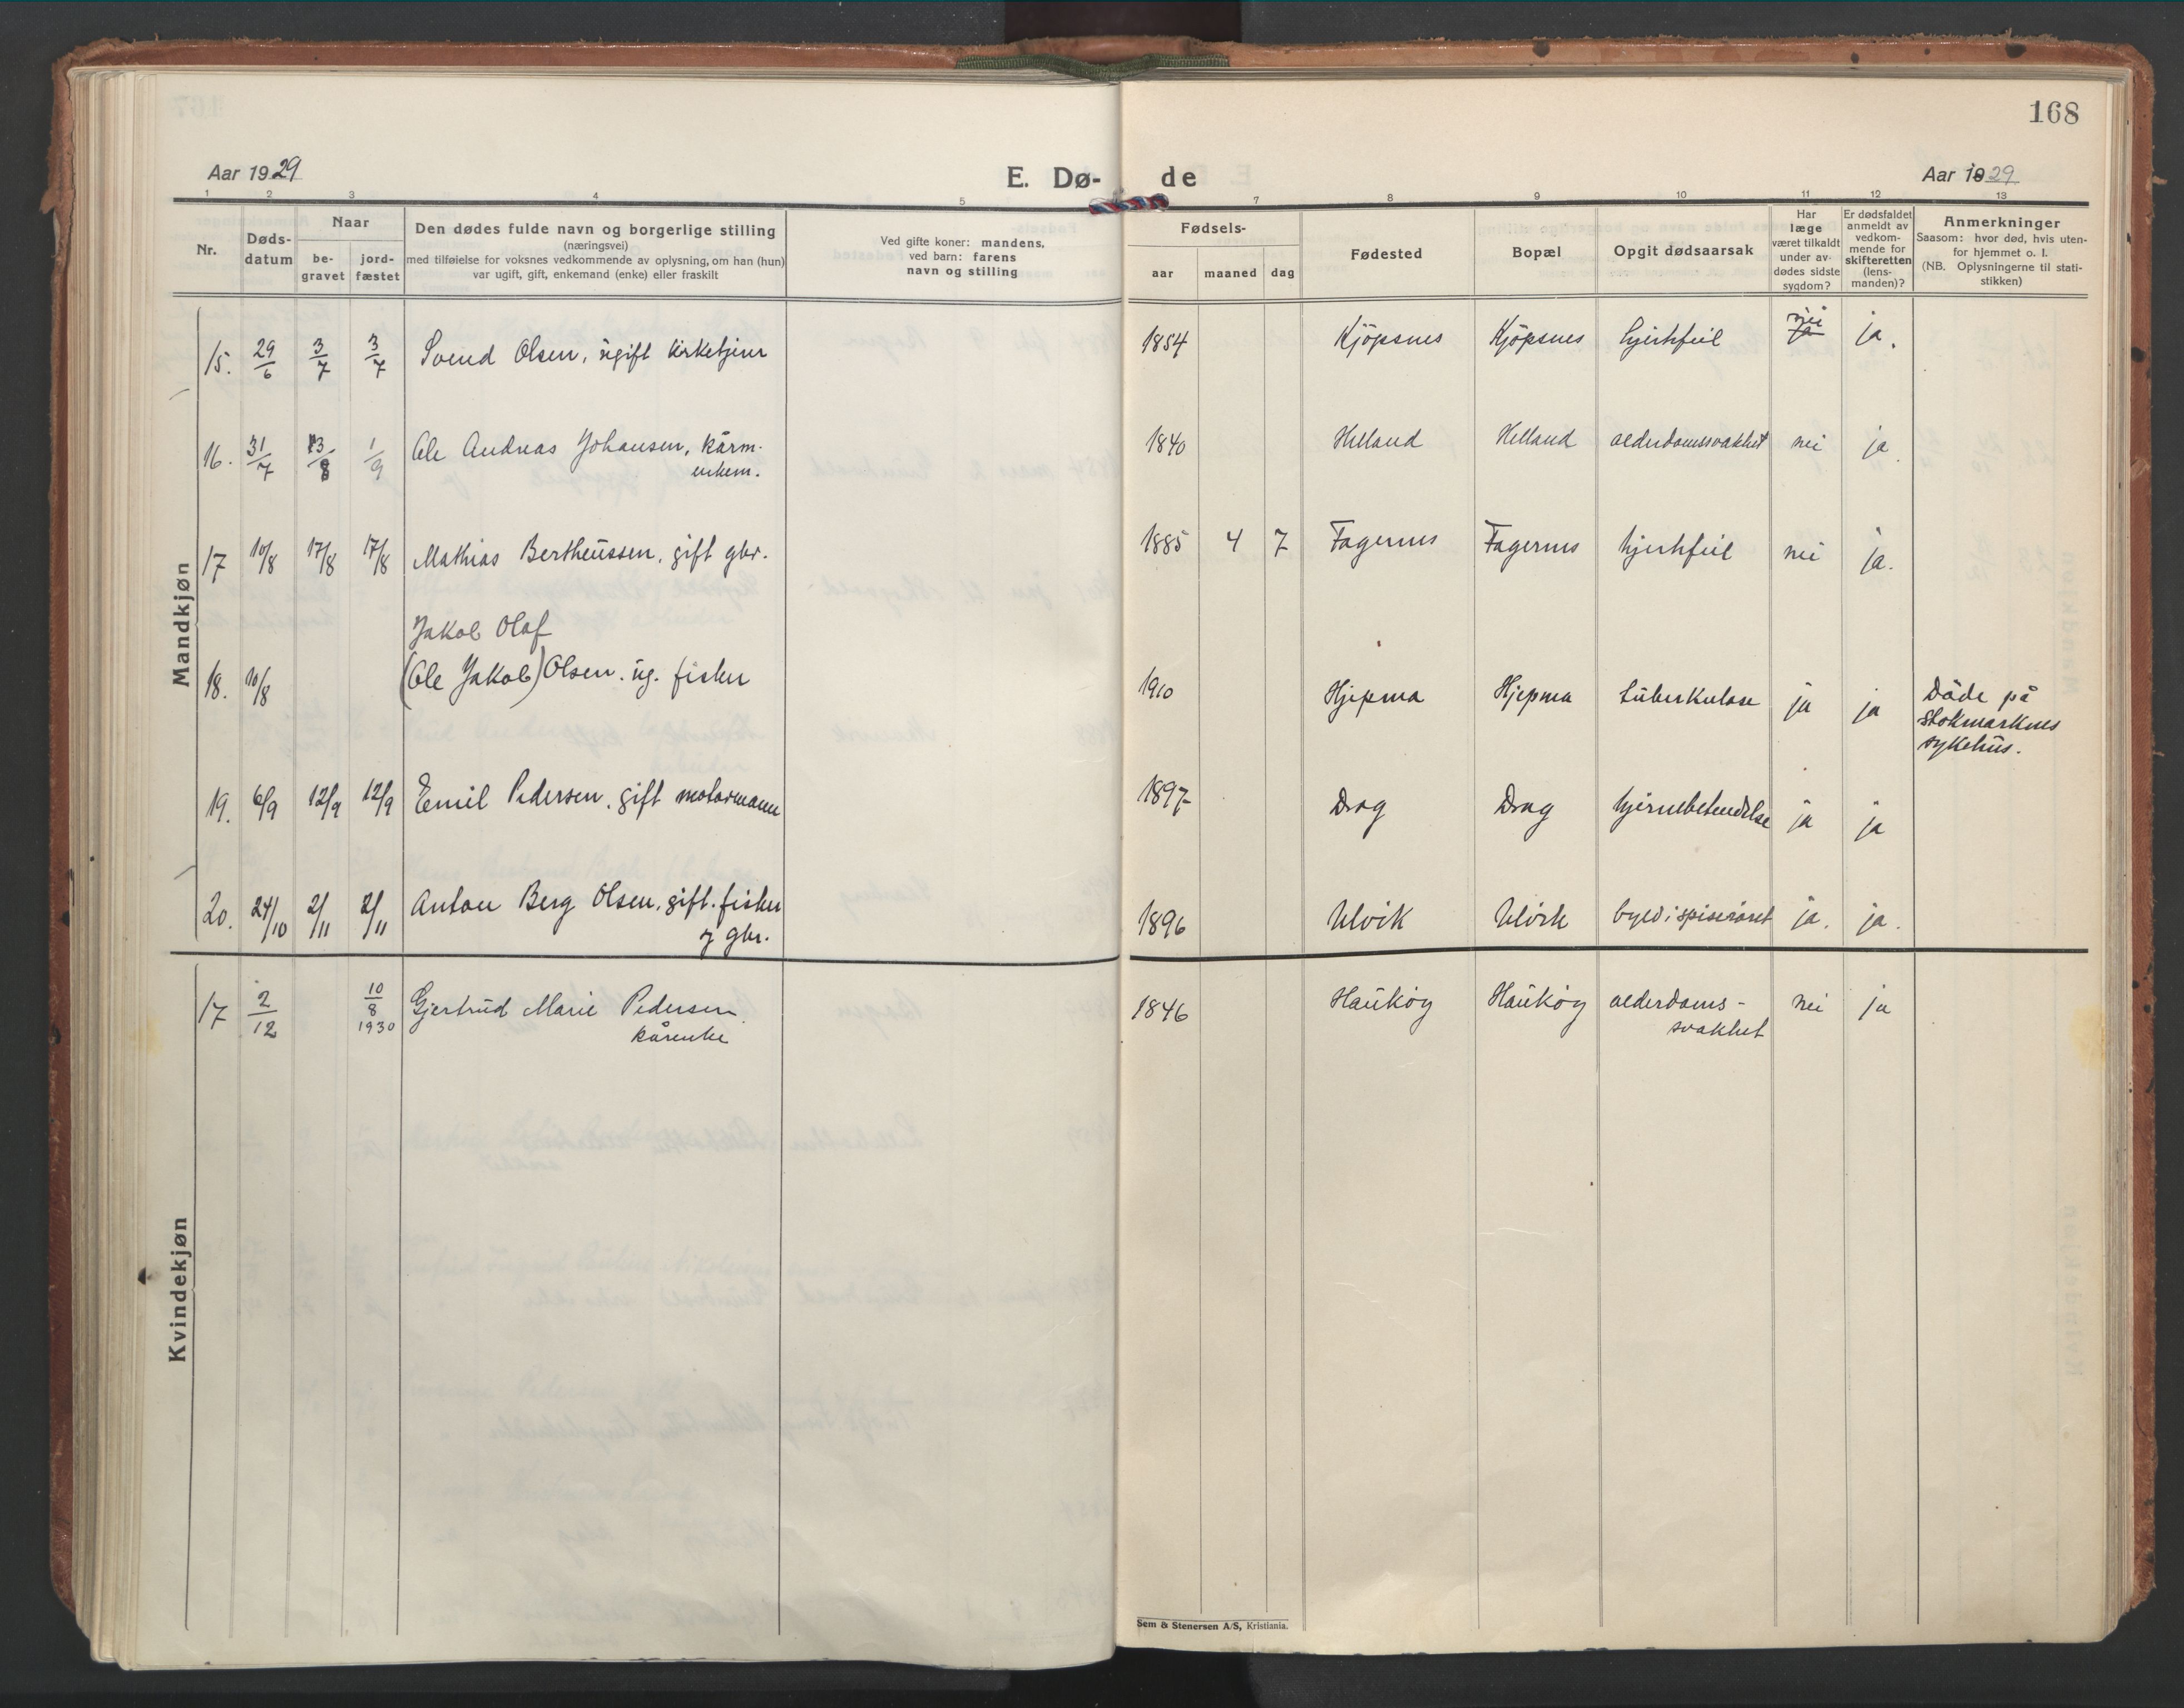 168
Aar 1929
E. Dø-
de
Aar 1929
1 2 3 4 5 7 8 9 10 11 12 13
Nr.
Døds-
datum
Naar
be-
gravet
jord-
fæstet
Den dødes fulde navn og borgerlige stilling
(næringsvei)
med tilføielse for voksnes vedkommende av oplysning, om han (hun)
var ugift, gift, enkemand (enke) eller fraskilt
Ved gifte koner: mandens,
ved barn: farens
navn og stilling
Fødsels-
aar maaned dag
Fødested
Bopæl
Opgit dødsaarsak
Har
læge
været tilkaldt
under av-
dødes sidste
sygdom?
Er dødsfaldet
anmeldt av
vedkom-
mende for
skifteretten
(lens-
manden)?
Anmerkninger
Saasom: hvor død, hvis uten-
for hjemmet o. l.
(NB. Oplysningerne til stati-
stikken)
Mandkjøn
15. 29/6 3/7 3/7 Svend Olsen, ugift kirketjener 1854 Kjöpsnes Kjöpsnes hjertefeil nei ja.
16. 31/7 13/8 1/9 Ole Andreas Johansen, kårm. 1840 Helland Helland alderdomssvakhet nei ja.
enkem.
17 10/8 17/8 17/8 Mathias Bertheussen, gift gbr. 1885 4 7 Fagernes Fagernes hjertefeil nei ja.
Jakob Olaf
18. 10/8 (Ole Jakob) Olsen. ug. fisker 1910 Hjepma Hjepma tuberkulose ja ja Døde på
Stokmarknes
sykehus.
19. 6/9 12/9 12/9 Emil Pedersen, gift motormann 1897 Drag Drag hjernebetendelse ja ja
20. 24/10 2/11 2/11 Anton Berg Olsen, gift. fisker 1896 Ulvik Ulvik byld i spiserøret ja. ja.
og gbr.
Kvindekjøn
17 2/12 10/8 1930 Gjertrud Marie Pedersen 1846 Haukøy Haukøy alderdoms-
svakhet nei ja
kårenke
Sem & Stenersen A/S, Kristiania.